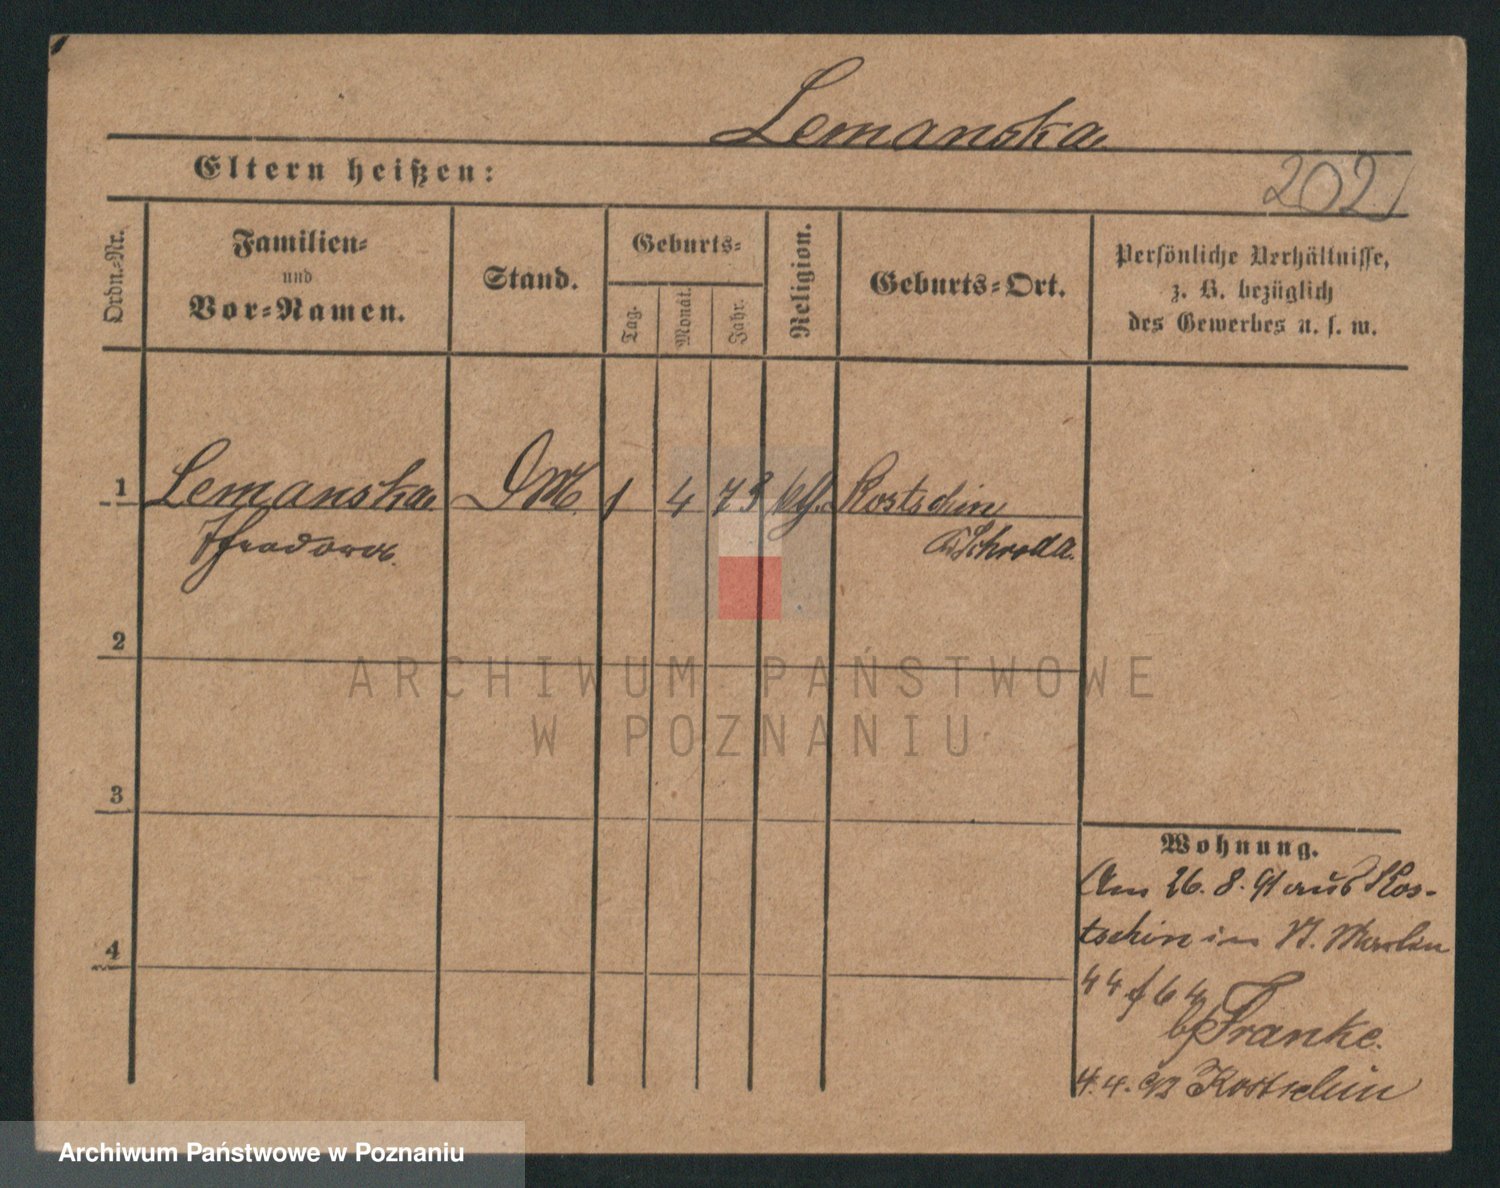 Lemanska
Eltern heißen:
202
Ordn.-Nr.
Familien-
und
Vor-Namen.
Stand.
Geburts-
Tag.
Monat.
Jahr.
Religion.
Geburts-Ort.
Persönliche Verhältnisse,
z. B. bezüglich
des Gewerbes u. s. w.
1 Lemanska DM. 1 4 73 kth. Kostschin
Theodora. Schroda.
2
3
4
Wohnung.
Am 26. 8. 91 aus Kos-
tschin in St. Martin
44 f 64
b/Franke.
4. 4. 92 Kostschin
ARCHIWUM PAŃSTWOWE
W POZNANIU
Archiwum Państwowe w Poznaniu